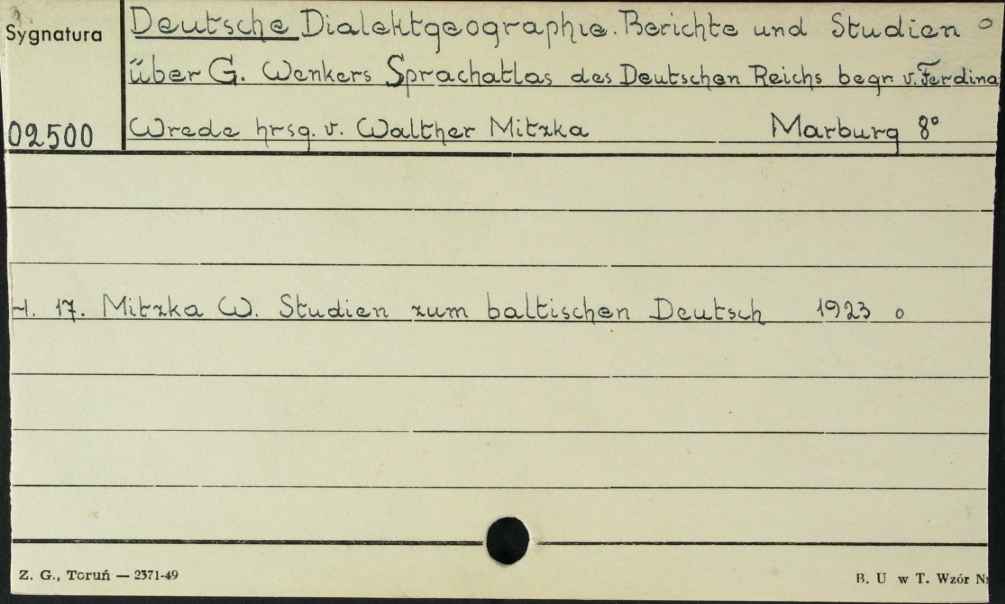 Sygnatura
Deutsche Dialektgeographie. Berichte und Studien o
über G. Wenkers Sprachatlas des Deutschen Reichs begr v. Ferdina
02500
Wrede hrsg. v. Walther Mitzka Marburg 8°
H. 17. Mitzka W. Studien zum baltischen Deutsch 1923 o
Z. G., Toruń — 2371-49
B. U w T. Wzór Nr